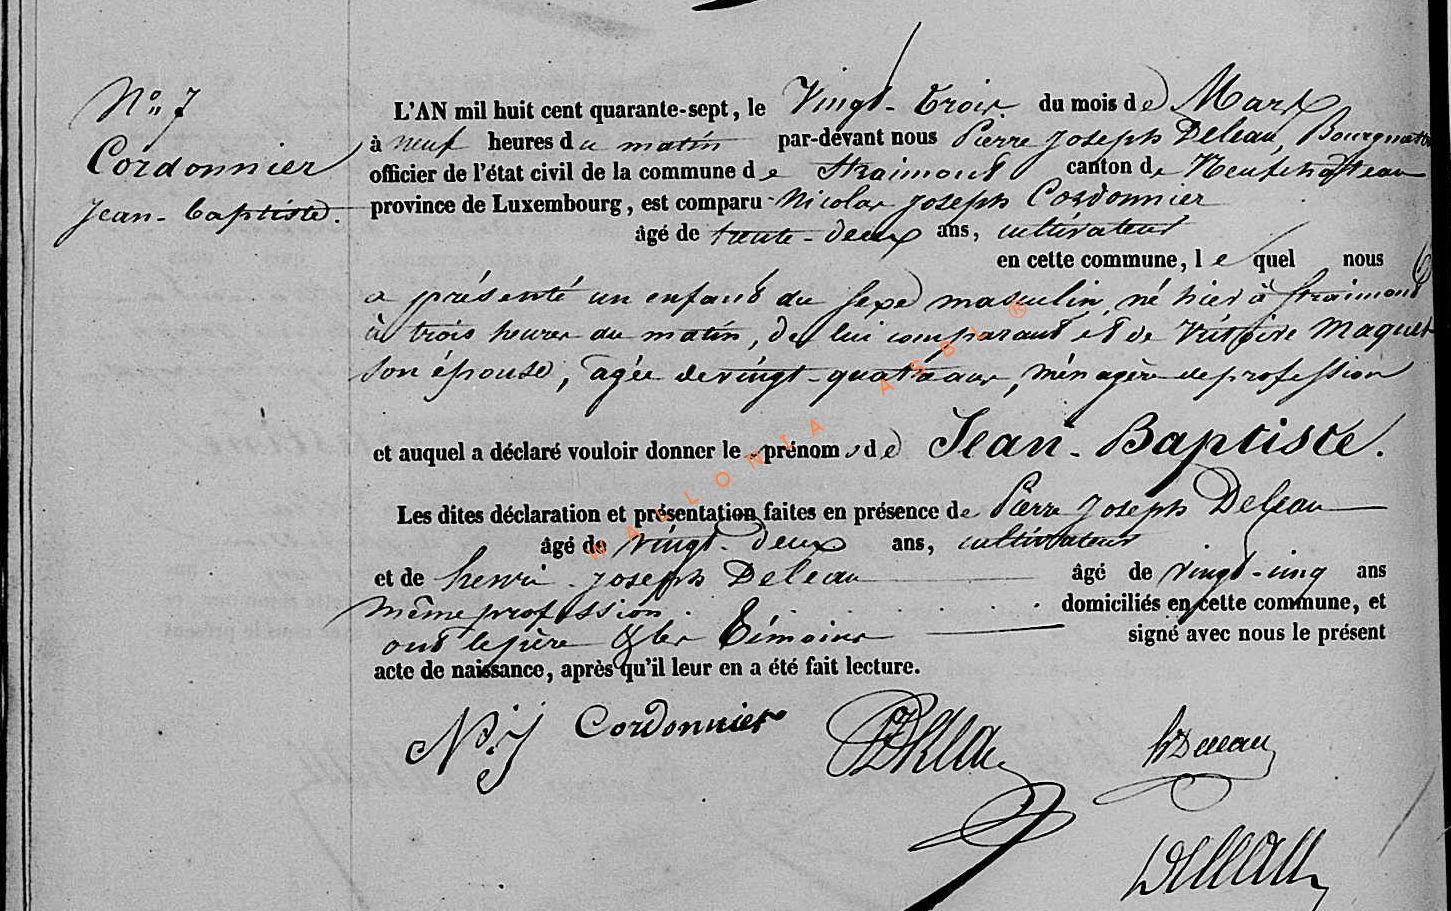 N° 7
Cordonnier
Jean-baptiste.
L'AN mil huit cent quarante-sept, le Vingt-trois du mois de Mars
à neuf heures du matin par-dévant nous Pierre Joseph Deleau, Bourgmestre
officier de l'état civil de la commune de Straimont canton de Neufchâteau
province de Luxembourg, est comparu Nicolas Joseph Cordonnier
âgé de trente-deux ans, cultivateur
en cette commune, lequel nous
a présenté un enfant du sexe masculin, né hier à Straimont
à trois heures du matin, de lui comparant et de Victoire Maquet
son épouse, agée de vingt-quatre ans, ménagère de profession
et auquel a déclaré vouloir donner le prénom de Jean-Baptiste.
Les dites déclaration et présentation faites en présence de Pierre Joseph Deleau
âgé de vingt-deux ans, cultivateur
et de henri-joseph Deleau âgé de vingt-cinq ans
même profession. domiciliés en cette commune, et
ont le père & les témoins signé avec nous le présent
acte de naissance, après qu'il leur en a été fait lecture.
N. J Cordonnier
hDeleau
Deleau
WALLONIA ASBL ®